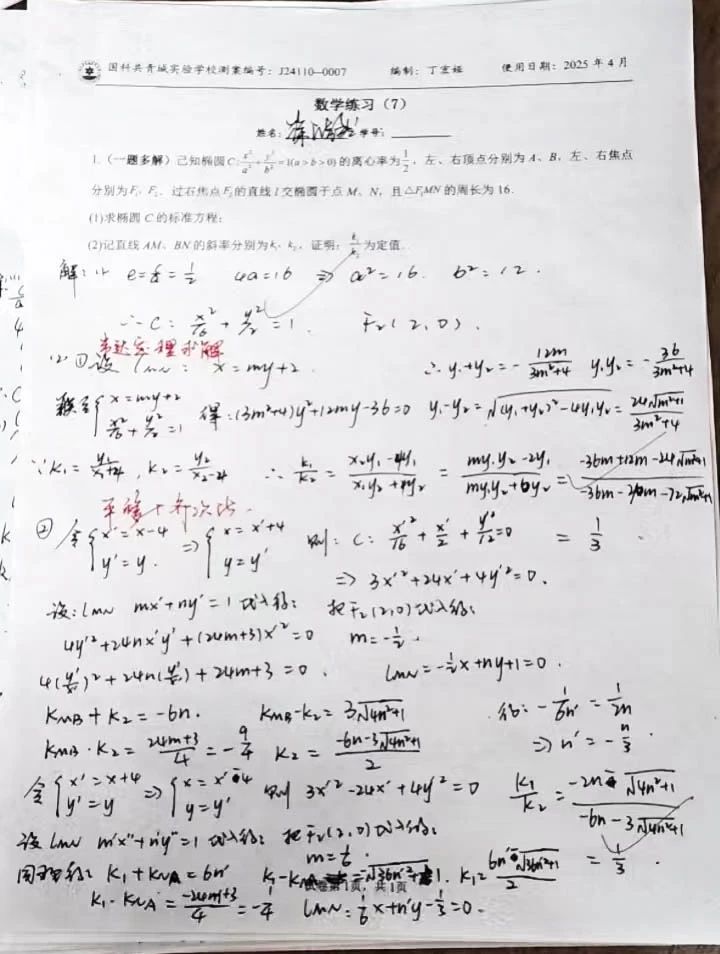 国科共青城实验学校测案编号：J24110—0007 编制：丁宏娅 使用日期：2025年4月
数学练习（7）
姓名： 学号：
1.（一题多解）已知椭圆C: x²/a² + y²/b² = 1(a > b > 0)的离心率为1/2，左、右顶点分别为A、B，左、右焦点
分别为F₁、F₂，过右焦点F₂的直线l交椭圆于点M、N，且△F₁MN的周长为16.
(1)求椭圆C的标准方程；
(2)记直线AM、BN的斜率分别为k₁、k₂，证明：k₁/k₂为定值.
解：(1) e=c/a=1/2 4a=16 ⇒ a²=16. b²=12.
∴C: x²/16 + y²/12 =1. F₂(2,0).
韦达定理求解
(2) ①设 lMN: x=my+2 ∴y₁+y₂=-12m/(3m²+4) y₁y₂=-36/(3m²+4)
联立{x=my+2 x²/16+y²/12=1 得:(3m²+4)y²+12my-36=0 y₁-y₂=√((y₁+y₂)²-4y₁y₂)=24√(m²+1)/(3m²+4)
∵k₁=y₁/(x₁+4), k₂=y₂/(x₂-4) ∴k₁/k₂=(x₂y₁-4y₁)/(x₁y₂+4y₂)=(my₁y₂-2y₁)/(my₁y₂+6y₂)=(-36m+12m-24√(m²+1))/(-36m-36m-72√(m²+1))
平移+齐次化.
② 令{x'=x-4 y'=y. ⇒{x=x'+4 y=y' 则: C: x'²/16+x'/2+y'²/12=0 =1/3.
⇒3x'²+24x'+4y'²=0.
设:lMN mx'+ny'=1 代入得: 把F₂(2,0)代入得:
4y'²+24nx'y'+(24m+3)x'²=0 m=-1/2.
4(y'/x')²+24n(y'/x')+24m+3=0. lMN=-1/2x+ny+1=0.
KMB+K₂=-6n. KMB-K₂=3√(4n²+1) 得:-1/6n'=1/2n
KMB·K₂=(24m+3)/4=-9/4 K₂=(-6n-3√(4n²+1))/2 ⇒n'=-n/3.
令{x'=x+4 y'=y ⇒{x=x'-4 y=y' 则 3x'²-24x'+4y²=0 K₁/K₂=(-2n-√(4n²+1))/(-6n-3√(4n²+1))
设lMN m'x''+n'y''=1 代入得: 把F₂(2,0)代入得:
m=1/6. =1/3.
同理得: K₁+KNA=6n' K₁-KNA=√(36n'²+1). K₁=(6n'-√(36n'²+1))/2
试卷第1页，共1页
K₁·KNA=(-24m'+3)/4=-1/4 lMN=1/6x+n'y-1/3=0.